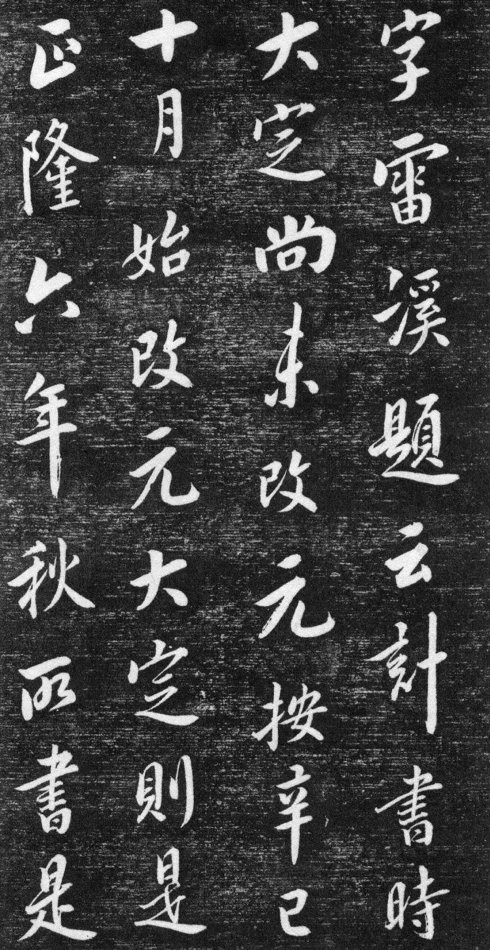 字雷溪題云計書時
大定尚未改元按辛巳
十月始改元大定則是
正隆六年秋所書是